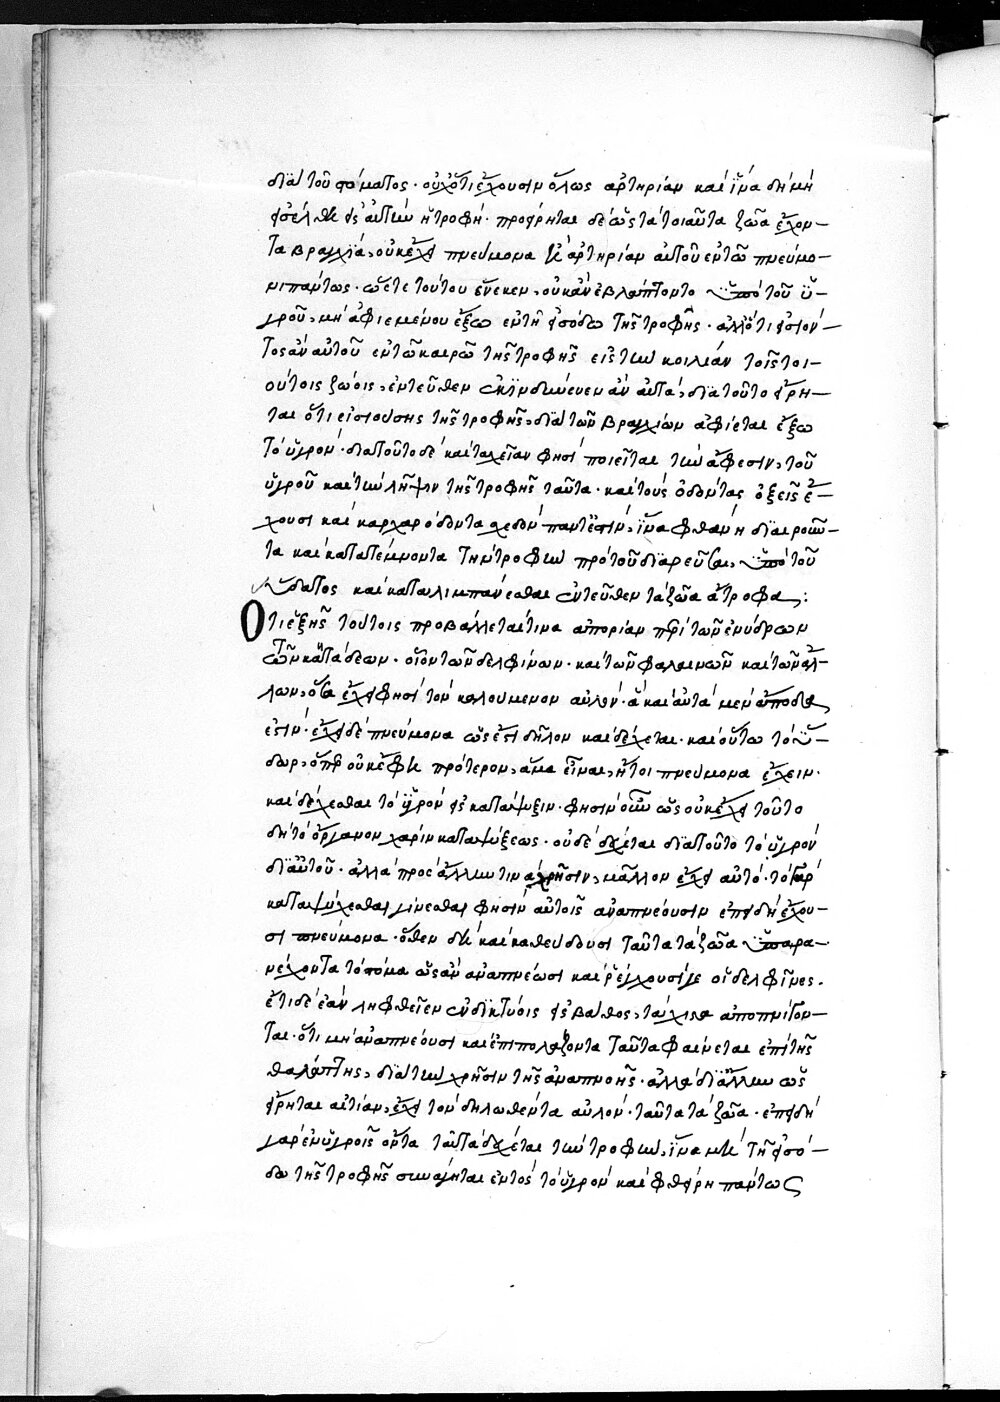 διὰ τοῦ στόματος · οὐχ ὅτι ἔχουσιν ὅλως ἀρτηρίαν καὶ ἵνα δὴ μὴ
εἰσέλθη εἰς αὐτὴν ἡ τροφή · προείρηται δὲ ὡς τὰ τοιαῦτα ζῶα ἔχον-
τα βραγχία, οὐκ ἔχει πνεύμονα καὶ ἀρτηρίαν αὐτοῦ ἐν τῶ πνεύμο-
νι πάντως · ὥστε τούτου ἕνεκεν, οὐκ ἂν ἐβλάπτοντο ὑπὸ τοῦ ὑ-
γροῦ, μὴ ἀφιεμένου ἔξω ἐν τῆ εἰσόδω τῆς τροφῆς · ἀλλ' ὅτι εἰσιόν-
τος ἂν αὐτοῦ ἐν τῶ καιρῶ τῆς τροφῆς εἰς τὴν κοιλίαν τοῖς τοι-
ούτοις ζώοις, ἐντεῦθεν ἐκινδύνευεν ἂν αὐτά, διὰ τοῦτο εἴρη-
ται ὅτι εἰσιούσης τῆς τροφῆς, διὰ τῶν βραγχίων ἀφίεται ἔξω
τὸ ὑγρόν · διὰ τοῦτο δὲ καὶ ταχεῖαν φησὶ ποιεῖται τὴν ἄφεσιν, τοῦ
ὑγροῦ καὶ τὴν λῆψιν τῆς τροφῆς ταῦτα · καὶ τοὺς ὀδόντας ὀξεῖς ἔ-
χουσι καὶ καρχαρόδοντα σχεδὸν πάντ' ἐστίν, ἵνα φθάνη διαιροῦν-
τα καὶ καταπέμποντα τὴν τροφὴν πρὸ τοῦ διαρεῦσαι, ὑπὸ τοῦ
ὕδατος καὶ καταλιμπάνεσθαι ἐντεῦθεν τὰ ζῶα ἄτροφα :
Ὅτι ἑξῆς τούτοις προβάλλεταί τινα ἀπορίαν περὶ τῶν ἐνύδρων
ζώων κἀπάδεων · οἷον τῶν δελφίνων · καὶ τῶν φαλαινῶν καὶ τῶν ἄλ-
λων, ὅσα ἔχει φησὶ τὸν καλούμενον αὐλόν · ἃ καὶ αὐτὰ μὲν ἄποδα
ἐστίν · ἔχει δὲ πνεύμονα ὥς ἐστι δῆλον καὶ δέχεται · καὶ οὕτω τὸ ὕ-
δωρ, ὅπερ οὐκ ἔφη πρότερον, ἅμα εἶναι, ἤτοι πνεύμονα ἔχειν ·
καὶ δέχεσθαι τὸ ὑγρὸν εἰς κατάψυξιν · φησὶν οὖν ὡς οὐκ ἔχει τοῦτο
δὴ τὸ ὄργανον χάριν καταψύξεως · οὐδὲ δέχεται διὰ τοῦτο τὸ ὑγρὸν
δι' αὐτοῦ · ἀλλὰ πρὸς ἄλλην τινὰ χρῆσιν, μᾶλλον ἔχει αὐτό · τὸ γὰρ
καταψύχεσθαι γίνεσθαι φησὶν αὐτοῖς ἀναπνέουσιν ἐπειδὴ ἔχου-
σι πνεύμονα · ὅθεν δὴ καὶ καθεύδουσι ταῦτα τὰ ζῶα ὑπερα-
νέχοντα τὸ στόμα ὡς ἂν ἀναπνέωσι καὶ ῥέγχουσί γε οἱ δελφῖνες.
ἔτι δὲ ἐὰν ληφθεῖεν ἐν δικτύοις εἰς βάθος, ταχίστα ἀποπνίγον-
ται · ὅτι μὴ ἀναπνέουσι καὶ ἐπιπολάζοντα ταῦτα φαίνεται ἐπὶ τῆς
θαλάττης, διὰ τὴν χρῆσιν τῆς ἀναπνοῆς · ἀλλὰ δι' ἄλλην ὡς
εἴρηται αἰτίαν, ἔχει τὸν δηλωθέντα αὐλόν · ταῦτα τὰ ζῶα · ἐπειδὴ
γὰρ ἐν ὑγροῖς ὄντα ταῦτα δέχεται τὴν τροφήν, ἵνα μὴ τῆ εἰσό-
δω τῆς τροφῆς συνάγηται ἐντὸς τὸ ὑγρὸν καὶ φθείρη πάντως